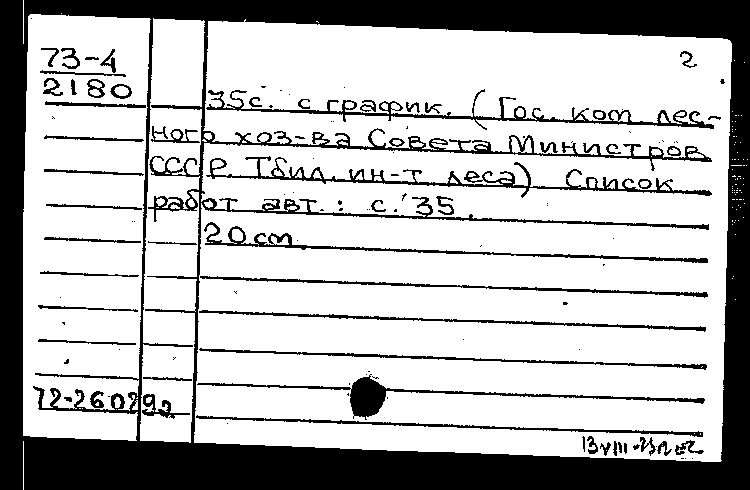 2
73-4
2180
35с. с график. (Гос. ком. лес-
ного хоз-ва Совета Министров
СССР. Тбил. ин-т леса) Список
работ авт.: с. 35.
20 cm.
72-26029